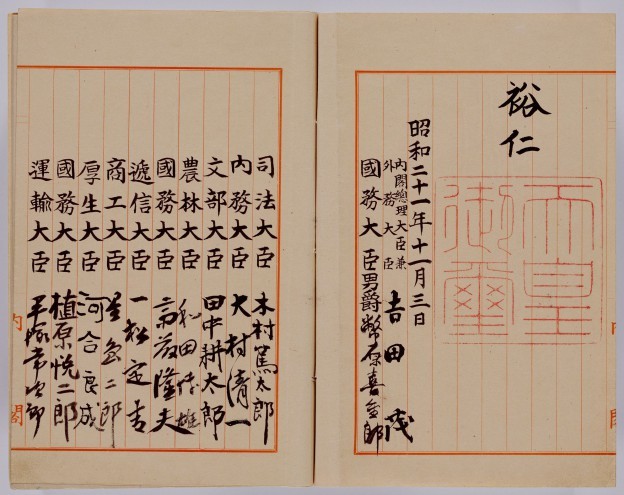 裕仁
天皇御璽
昭和二十一年十一月三日
内閣總理大臣兼
外務大臣 吉田茂
國務大臣男爵幣原喜重郎
司法大臣 木村篤太郎
内務大臣 大村清一
文部大臣 田中耕太郎
農林大臣 和田博雄
國務大臣 斎藤隆夫
遞信大臣 一松定吉
商工大臣 星島二郎
厚生大臣 河合良成
國務大臣 植原悦二郎
運輸大臣 平塚常次郎
内閣
内閣